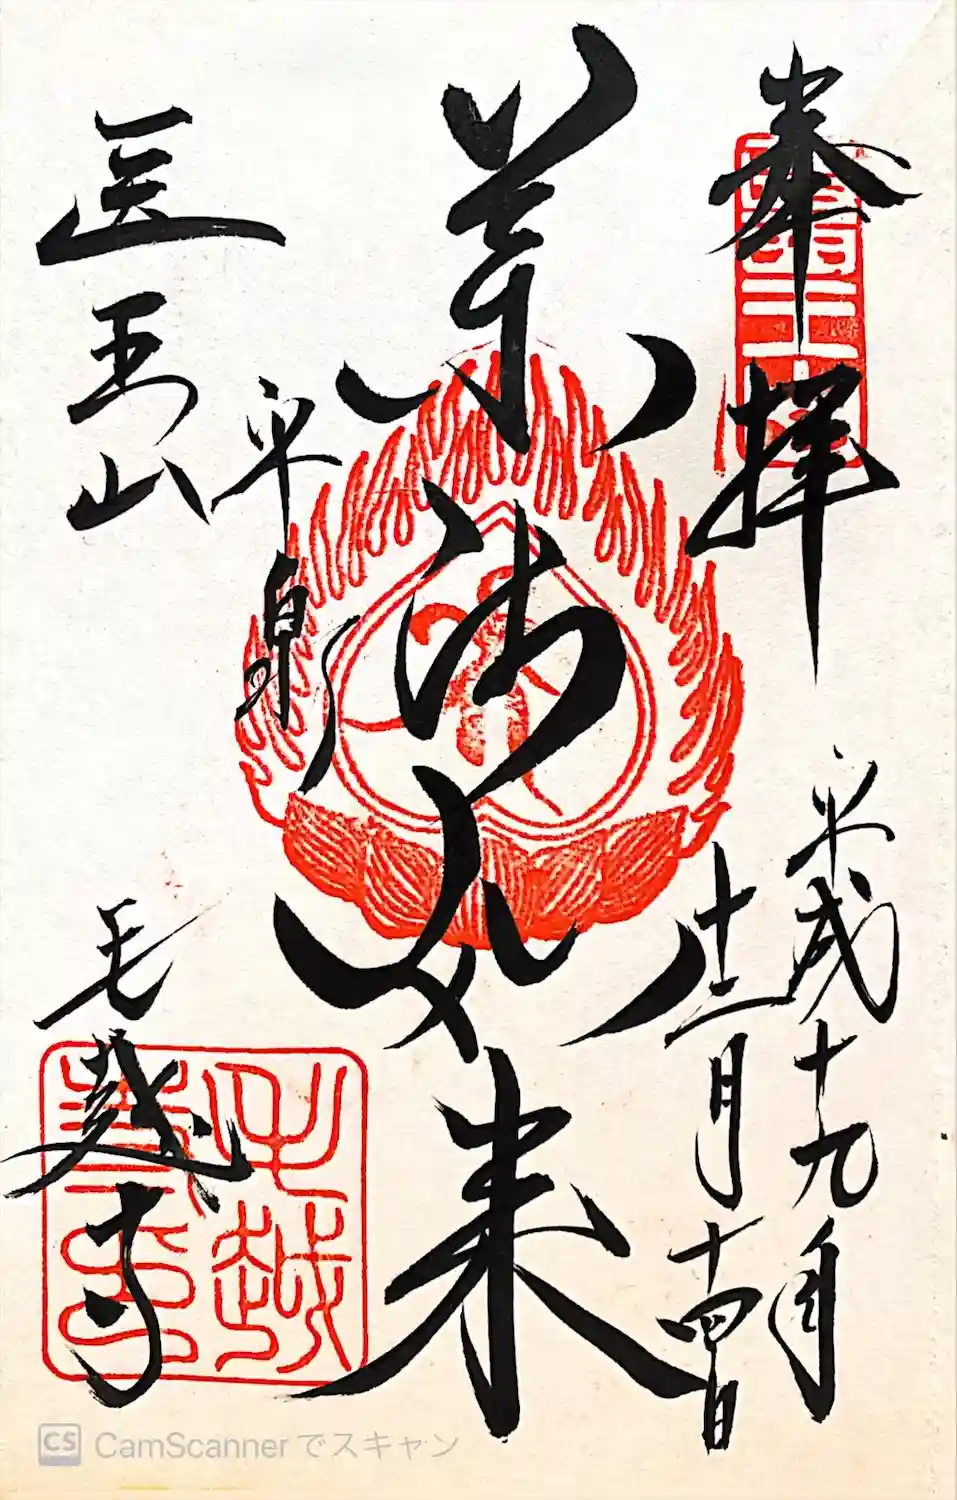 奉拝
平成十九年
十二月十四日
薬師如来
平泉
医王山
毛越寺
毛越寺印
CS CamScanner でスキャン